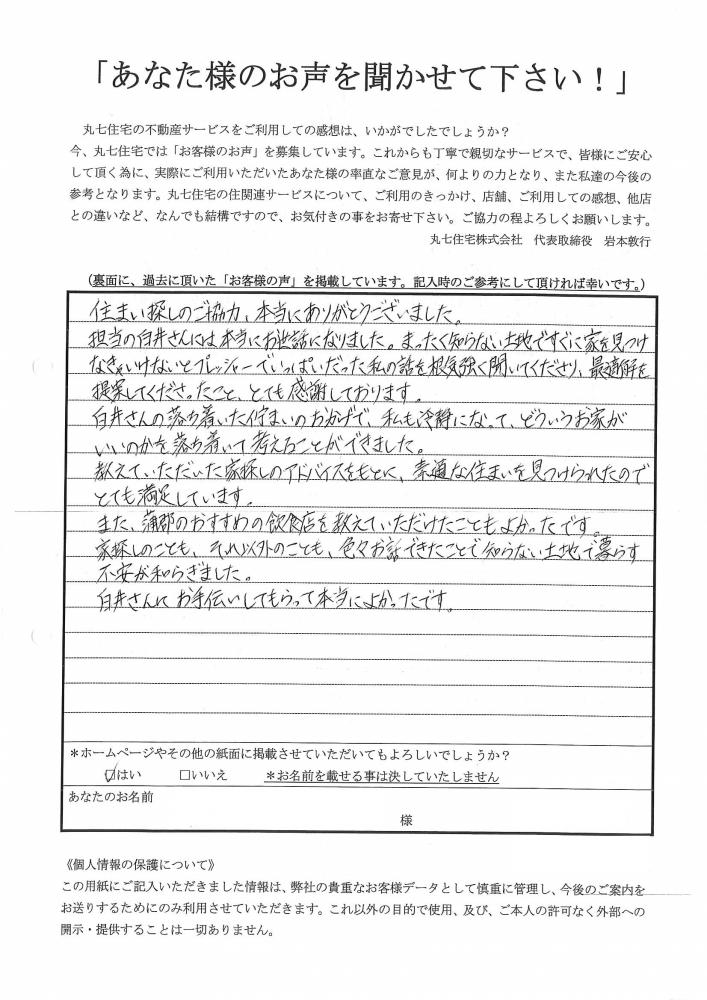 「あなた様のお声を聞かせて下さい！」
丸七住宅の不動産サービスをご利用しての感想は、いかがでしたでしょうか？
今、丸七住宅では「お客様のお声」を募集しています。これからも丁寧で親切なサービスで、皆様にご安心
して頂く為に、実際にご利用いただいたあなた様の率直なご意見が、何よりの力となり、また私達の今後の
参考となります。丸七住宅の住関連サービスについて、ご利用のきっかけ、店舗、ご利用しての感想、他店
との違いなど、なんでも結構ですので、お気付きの事をお寄せ下さい。ご協力の程よろしくお願いします。
丸七住宅株式会社　代表取締役　岩本敦行
（裏面に、過去に頂いた「お客様の声」を掲載しています。記入時のご参考にして頂ければ幸いです。）
住まい探しのご協力、本当にありがとうございました。
担当の白井さんには本当にお世話になりました。まったく知らない土地ですぐに家を見つけ
なきゃいけないとプレッシャーでいっぱいだった私の話を根気強く聞いてくださり、最適解を
提案してくださったこと、とても感謝しております。
白井さんの落ち着いた佇まいのおかげで、私も冷静になって、どういうお家が
いいのかを落ち着いて考えることができました。
教えていただいた家探しのアドバイスをもとに、素適な住まいを見つけられたので
とても満足しています。
また、蒲郡のおすすめの飲食店を教えていただけたこともよかったです。
家探しのことも、それ以外のことも、色々お話できたことで知らない土地で暮らす
不安が和らぎました。
白井さんにお手伝いしてもらって本当によかったです。
＊ホームページやその他の紙面に掲載させていただいてもよろしいでしょうか？
☑はい　□いいえ　＊お名前を載せる事は決していたしません
あなたのお名前
様
《個人情報の保護について》
この用紙にご記入いただきました情報は、弊社の貴重なお客様データとして慎重に管理し、今後のご案内を
お送りするためにのみ利用させていただきます。これ以外の目的で使用、及び、ご本人の許可なく外部への
開示・提供することは一切ありません。